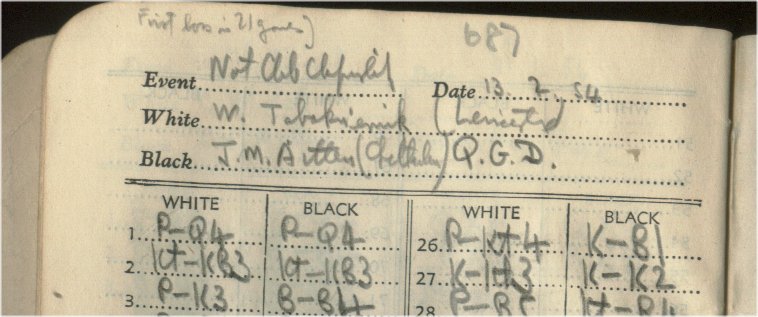 First loss in 21 games) 687
Event Nat Club Ch'pship Date 13. 2. 54
White W. (Leicester)
Black J.M. Aitken (Cheltenham) Q.G.D.
WHITE BLACK WHITE BLACK
1. P-Q4 P-Q4 26. P-Kt4 K-B1
2. Kt-KB3 Kt-KB3 27. K-Kt3 K-K2
3. P-K3 B-B4 28